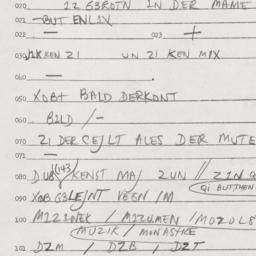 020 12 G3ROTN IN DER MAME
021 -BUT ENLIX
022 — 023 +
030 KEN ZI UN ZI KEN MIX
040 —
050 XOB+ BALD DERKONT
060 BILD /-
070 ZI DER CEJLT ALES DER MUTE
071 —
080 (143) KENST MAJ ZUN // ZIN
QI BUTTHEN
090 XOB G3LEJNT VEGN /M
100 MIZINEK / MIZUMEN / MOZOL
MUZIK / MONASTKE
101 DZM / DZB / DZT